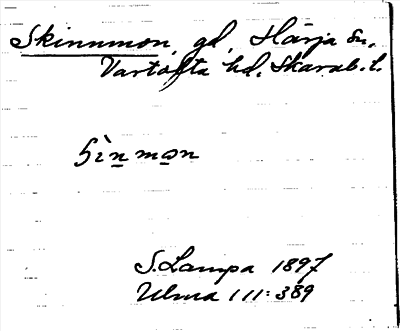 Skinnmon, gd, Härja sn,
Vartofta hd, Skarab. l.
Sìnmon
S. Lampa 1897
Ulma 111:389